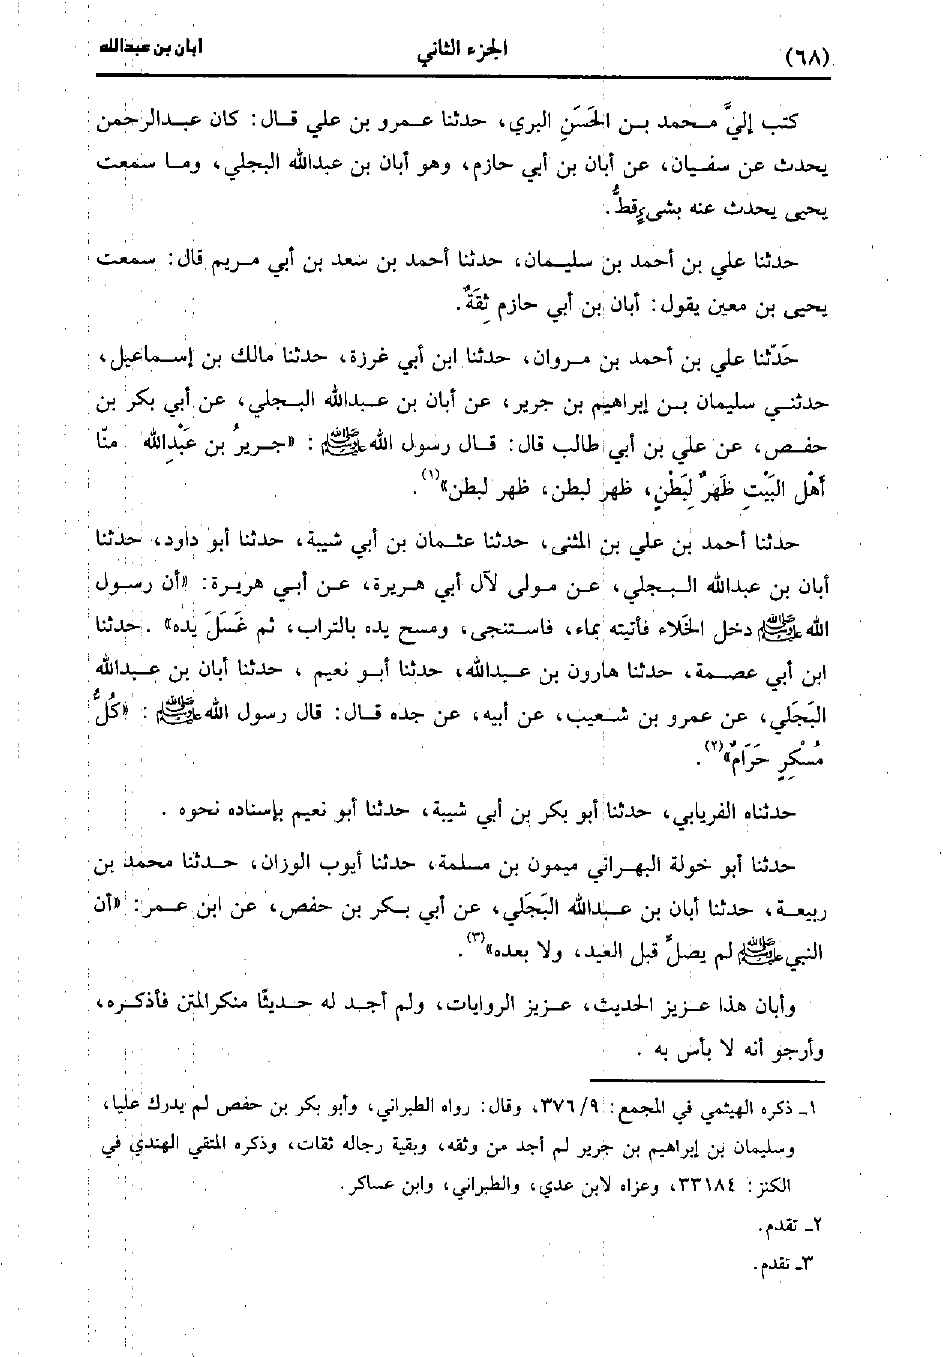 (٦٨) الجزء الثاني ابان بن عبدالله
كتب إليَّ محمد بن الحَسَنِ البري، حدثنا عمرو بن علي قال: كان عبدالرحمن
يحدث عن سفيان، عن أبان بن أبي حازم، وهو أبان بن عبدالله البجلي، وما سمعت
يحيى يحدث عنه بشيءٍ قطُّ.
حدثنا علي بن أحمد بن سليمان، حدثنا أحمد بن سعد بن أبي مريم قال: سمعت
يحيى بن معين يقول: أبان بن أبي حازم ثِقَةٌ.
حَدَّثنا علي بن أحمد بن مروان، حدثنا ابن أبي غرزة، حدثنا مالك بن إسماعيل،
حدثني سليمان بن إبراهيم بن جرير، عن أبان بن عبدالله البجلي، عن أبي بكر بن
حفص، عن علي بن أبي طالب قال: قال رسول الله ﷺ : «جريرُ بن عَبْدِالله منّا
أهْل البَيْتِ ظَهرٌ لِبَطْنٍ، ظهر لبطن، ظهر لبطن»(١).
حدثنا أحمد بن علي بن المثنى، حدثنا عثمان بن أبي شيبة، حدثنا أبو داود، حدثنا
أبان بن عبدالله البجلي، عن مولى لآل أبي هريرة، عن أبي هريرة: «أن رسول
الله ﷺ دخل الخلاء فأتيته بماء، فاستنجى، ومسح يده بالتراب، ثم غَسَلَ يده» . حدثنا
ابن أبي عصمة، حدثنا هارون بن عبدالله، حدثنا أبو نعيم ، حدثنا أبان بن عبدالله
البَجَلي، عن عمرو بن شعيب، عن أبيه، عن جده قال: قال رسول الله ﷺ : «كُلُّ
مُسْكِرٍ حَرَامٌ»(٢).
حدثناه الفريابي، حدثنا أبو بكر بن أبي شيبة، حدثنا أبو نعيم بإسناده نحوه .
حدثنا أبو خولة البهراني ميمون بن مسلمة، حدثنا أيوب الوزان، حدثنا محمد بن
ربيعة، حدثنا أبان بن عبدالله البَجَلي، عن أبي بكر بن حفص، عن ابن عمر: «أن
النبي ﷺ لم يصلِّ قبل العيد، ولا بعده»(٣).
وأبان هذا عزيز الحديث، عزيز الروايات، ولم أجد له حديثًا منكر المتن فأذكره،
وأرجو أنه لا بأس به .
١ـ ذكره الهيثمي في المجمع: ٣٧٦/٩، وقال: رواه الطبراني، وأبو بكر بن حفص لم يدرك عليا،
وسليمان بن إبراهيم بن جرير لم أجد من وثقه، وبقية رجاله ثقات، وذكره المتقي الهندي في
الكنز: ٣٣١٨٤، وعزاه لابن عدي، والطبراني، وابن عساكر.
٢ـ تقدم.
٣ـ تقدم.